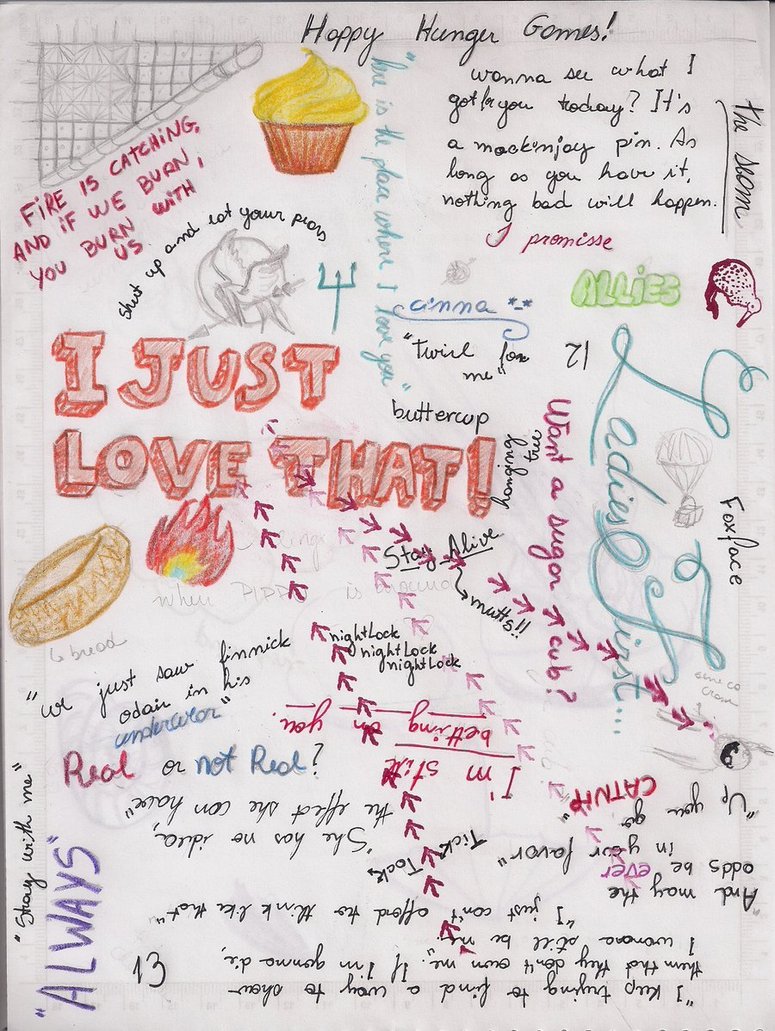 Happy Hunger Games!
wanna see what I
got for you today? It's
a mockinjay pin. As
long as you have it,
nothing bad will happen.
I promisse
the seam
"here is the place where I love you"
FIRE IS CATCHING,
AND IF WE BURN,
YOU BURN WITH
US
Shut up and eat your pears
cinna *-*
ALLIES
"Twirl for
me"
12
I JUST
LOVE THAT!
buttercup
hanging
tree
Want a sugar cub?
Ladies First...
Foxface
Stay Alive
mutts!!
when
is around
bread
nightlock
nightlock
nightlock
"we just saw finnick
odair in his
underwear"
I'm still
betting on
you.
Real or not Real?
"She has no idea,
the effect she can have"
Tick,
Tock,
CATNIP
"Up you
go"
"And may the
odds be ever
in your favor"
"Stay with me"
"ALWAYS"
13
"I keep trying to find a way to show
them that they don't own me. If I'm gonna die,
I wanna still be me"
"I just can't afford to think like that"